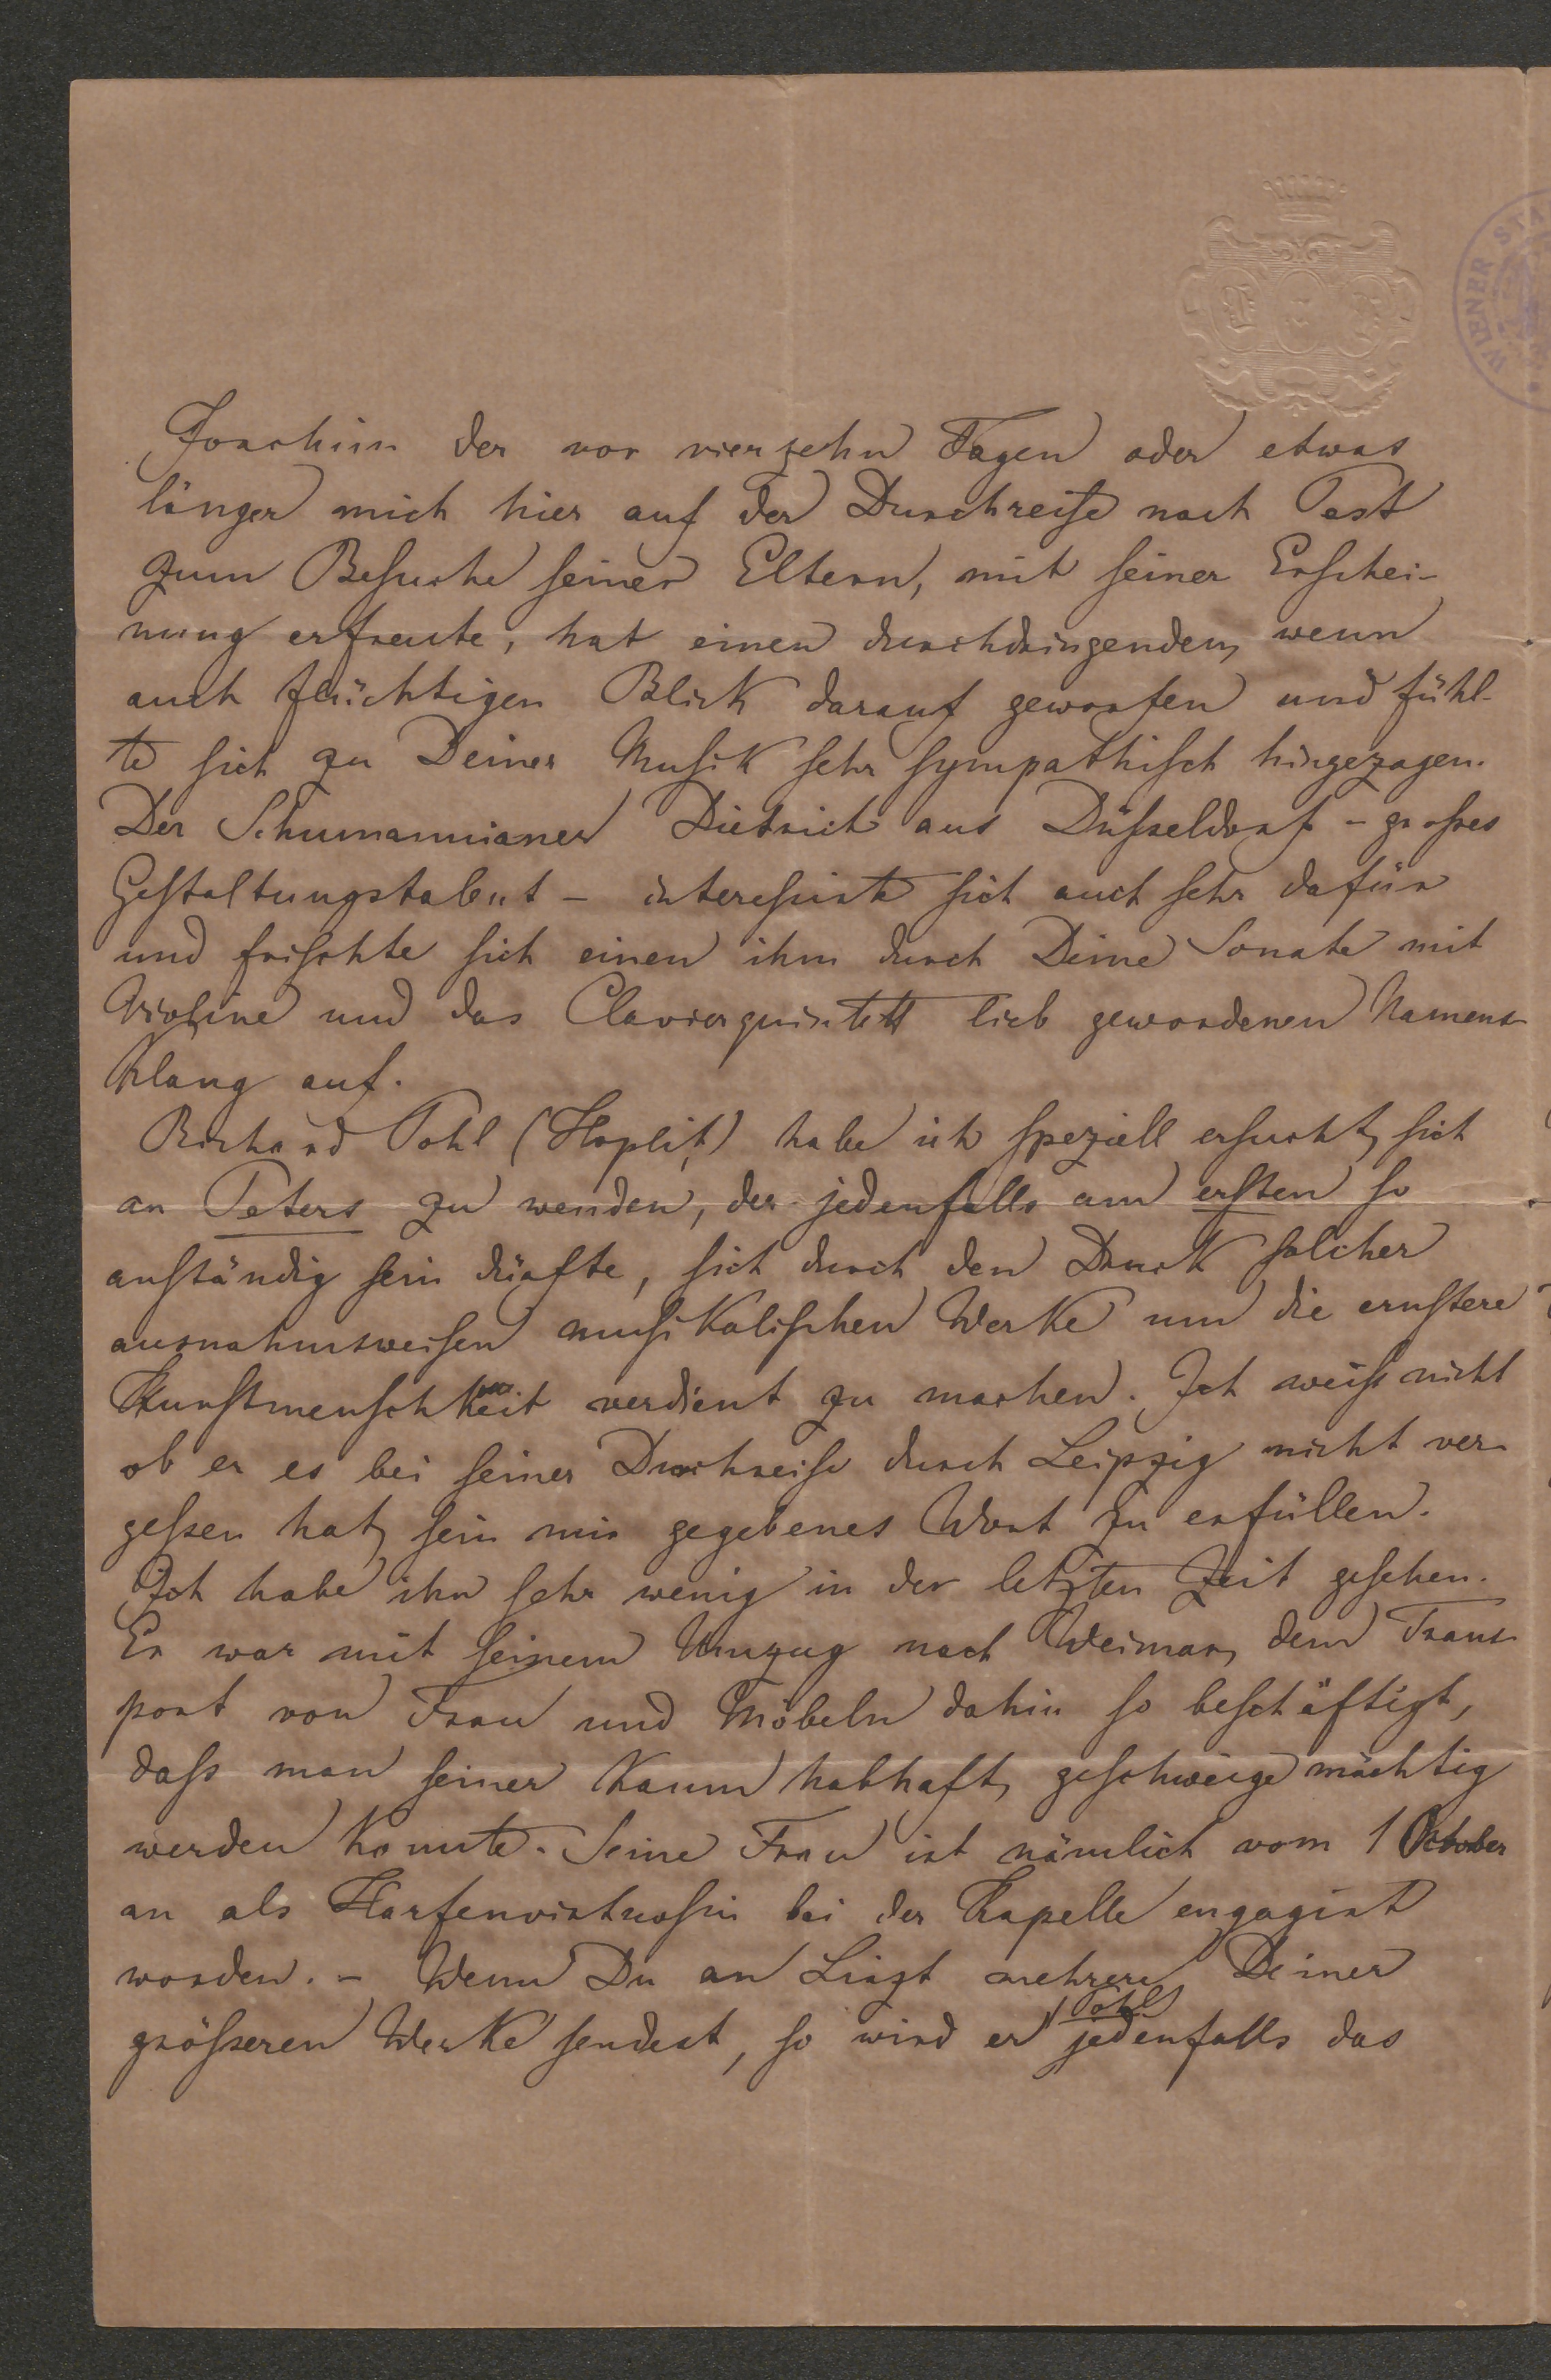 WIENER STA
Joachim der vor vierzehn Tagen oder etwas
länger mich hier auf der Durchreise nach Pest
zum Besuche seiner Eltern, mit seiner Erschei-
nung erfreute, hat einen durchdringenden, wenn
auch flüchtigen Blick darauf geworfen und fühl-
te sich zu Deiner Musik sehr sympathisch hingezogen.
Der Schumannianer Dietrich aus Düsseldorf – grosses
Gestaltungstalent – interessirte sich auch sehr dafür
und frischte sich einen ihm durch Deine Sonate mit
Violine und das Clavierquintett lieb gewordenen Namens-
klang auf.
Richard Pohl (Hoplit) habe ich speziell ersucht, sich
an Peters zu wenden, der jedenfalls am ersten so
anständig sein dürfte, sich durch den Druck solcher
ausnahmsweisen musikalischen Werke um die ernstere
Kunstmenschheit verdient zu machen. Ich weiss nicht
ob er es bei seiner Durchreise durch Leipzig nicht ver-
gessen hat, sein mir gegebenes Wort zu erfüllen.
Ich habe ihn sehr wenig in der letzten Zeit gesehen.
Er war mit seinem Umzug nach Weimar, dem Trans-
port von Frau und Möbeln dahin so beschäftigt,
dass man seiner kaum habhaft, geschweige mächtig
werden konnte. Seine Frau ist nämlich vom 1 October
an als Harfenvirtuosin bei der Kapelle engagirt
worden. – Wenn Du an Liszt mehrere Deiner
grösseren Werke sendest, so wird er (Pohl) jedenfalls das